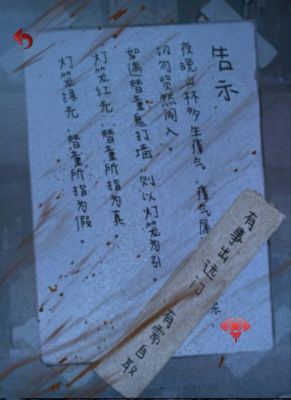 告示
夜晚山林多生瘴气，瘴气
切勿贸然闯入。
如遇替童鬼打墙，则以灯笼为引
灯笼红光，替童所指为真
灯笼绿光，替童所指为假。
有事出远门
有需自取